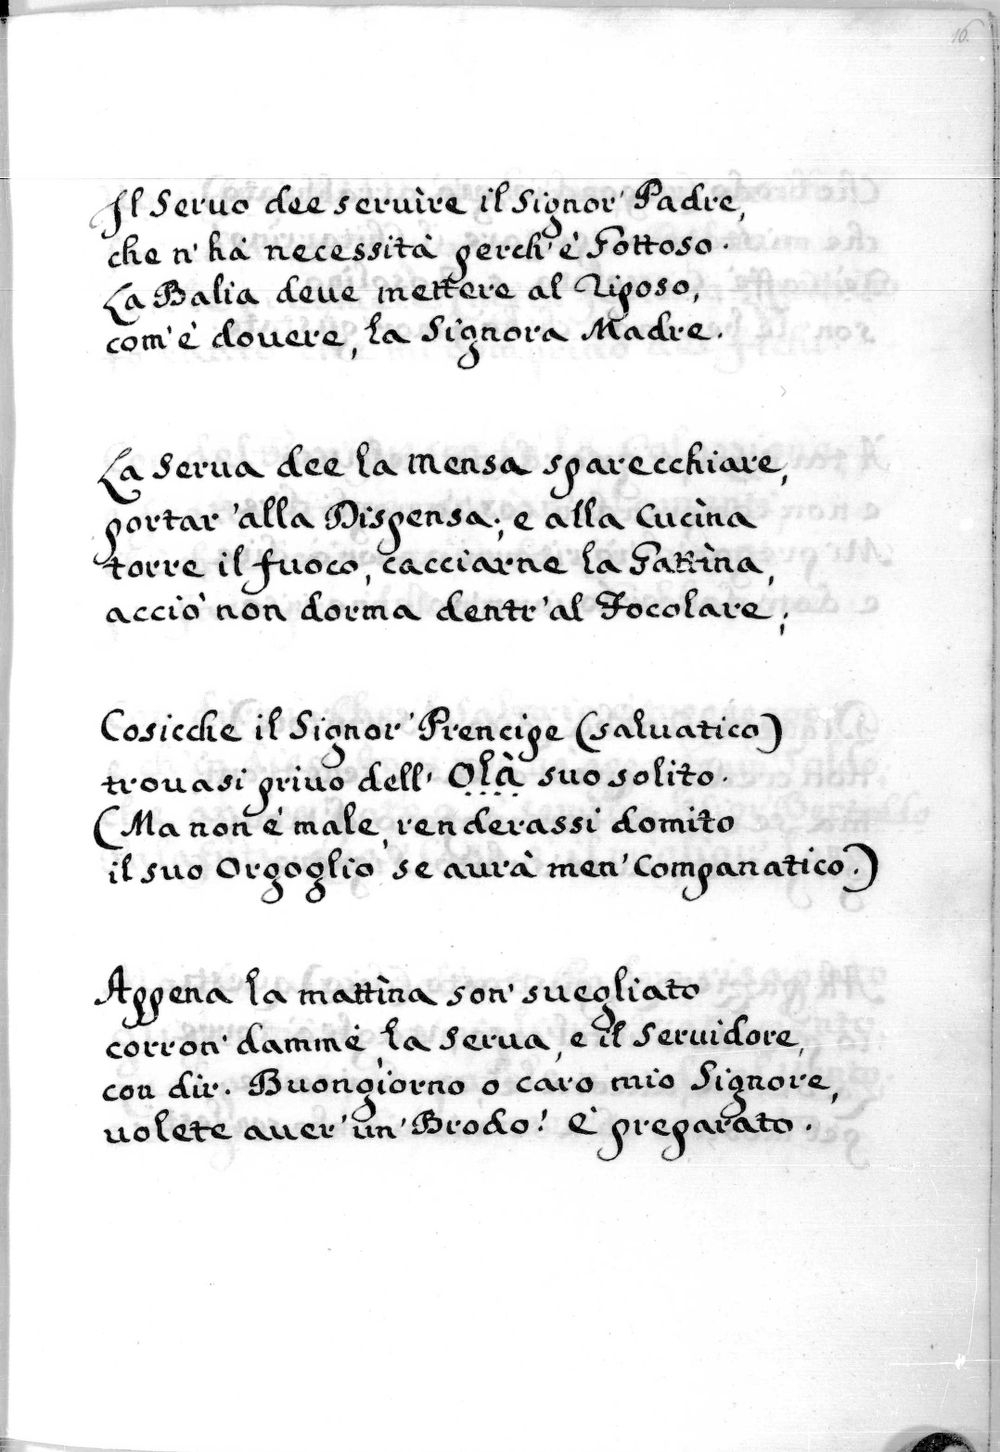 16.
Il Seruo dee seruìre il Signor' Padre,
che n' hà necessità perch'è Gottoso.
La Balia deue mettere al Riposo,
com'è douere, la Signora Madre.
La Serua dee la Mensa sparecchiare,
portar 'alla Dispensa; e alla Cucìna
torre il fuoco, cacciarne la Gattìna,
acciò non dorma dentr'al Focolare;
Cosicche il Signor' Prencipe (saluatico)
trouasi priuo dell' Olà suo solito.
(Ma non è male, renderassi domito
il suo Orgoglio se aurà men' Companatico.)
Appena la mattìna son' suegliato
corron' dammè la Serua, e il Seruidore,
con dir. Buongiorno o caro mio Signore,
uolete auer' un' Brodo? È preparato.